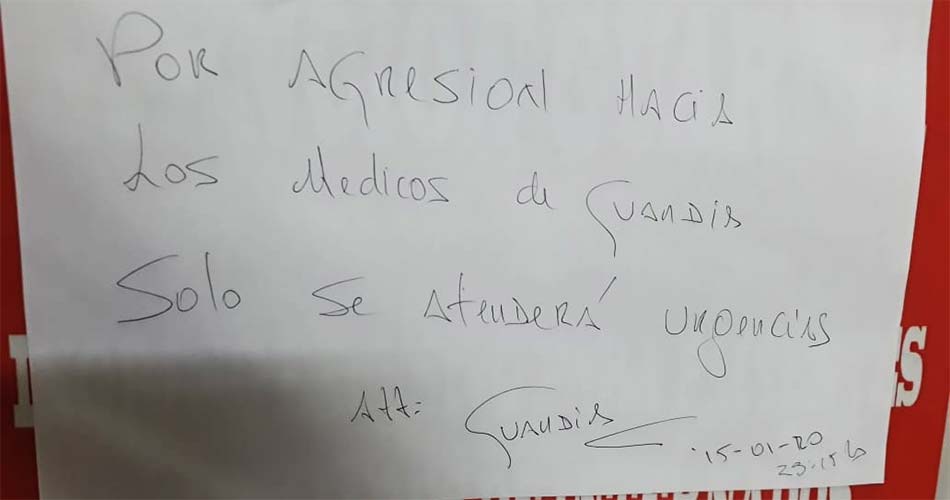 Por Agresion Hacia
Los Medicos de Guardia
Solo Se Atenderá Urgencias
Att: Guardia
15-01-20
23:15 h